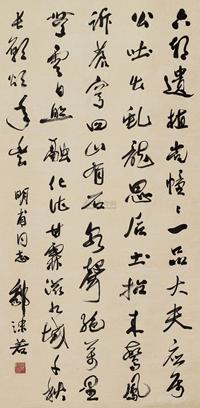 六朝遺植尚幢幢一品大夫應屬
公吐出虬龍思后土招來鸞鳳
訴蒼穹四山有石泉聲絕萬里
無雲日照融化作甘霖滋九域千秋
長願頌年豐 明甫同志 郭沫若